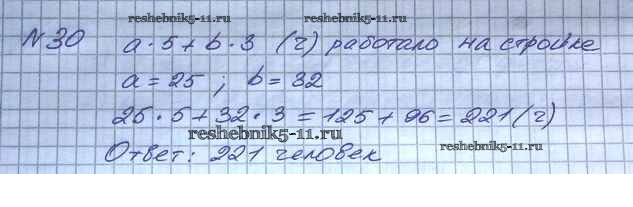 reshebnik5-11.ru
reshebnik5-11.ru
N30 a·5+b·3 (ч) работало на стройке
a=25 ; b=32
25·5+32·3=125+96=221(ч)
reshebnik5-11.ru
reshebnik5-11.ru
Ответ: 221 человек